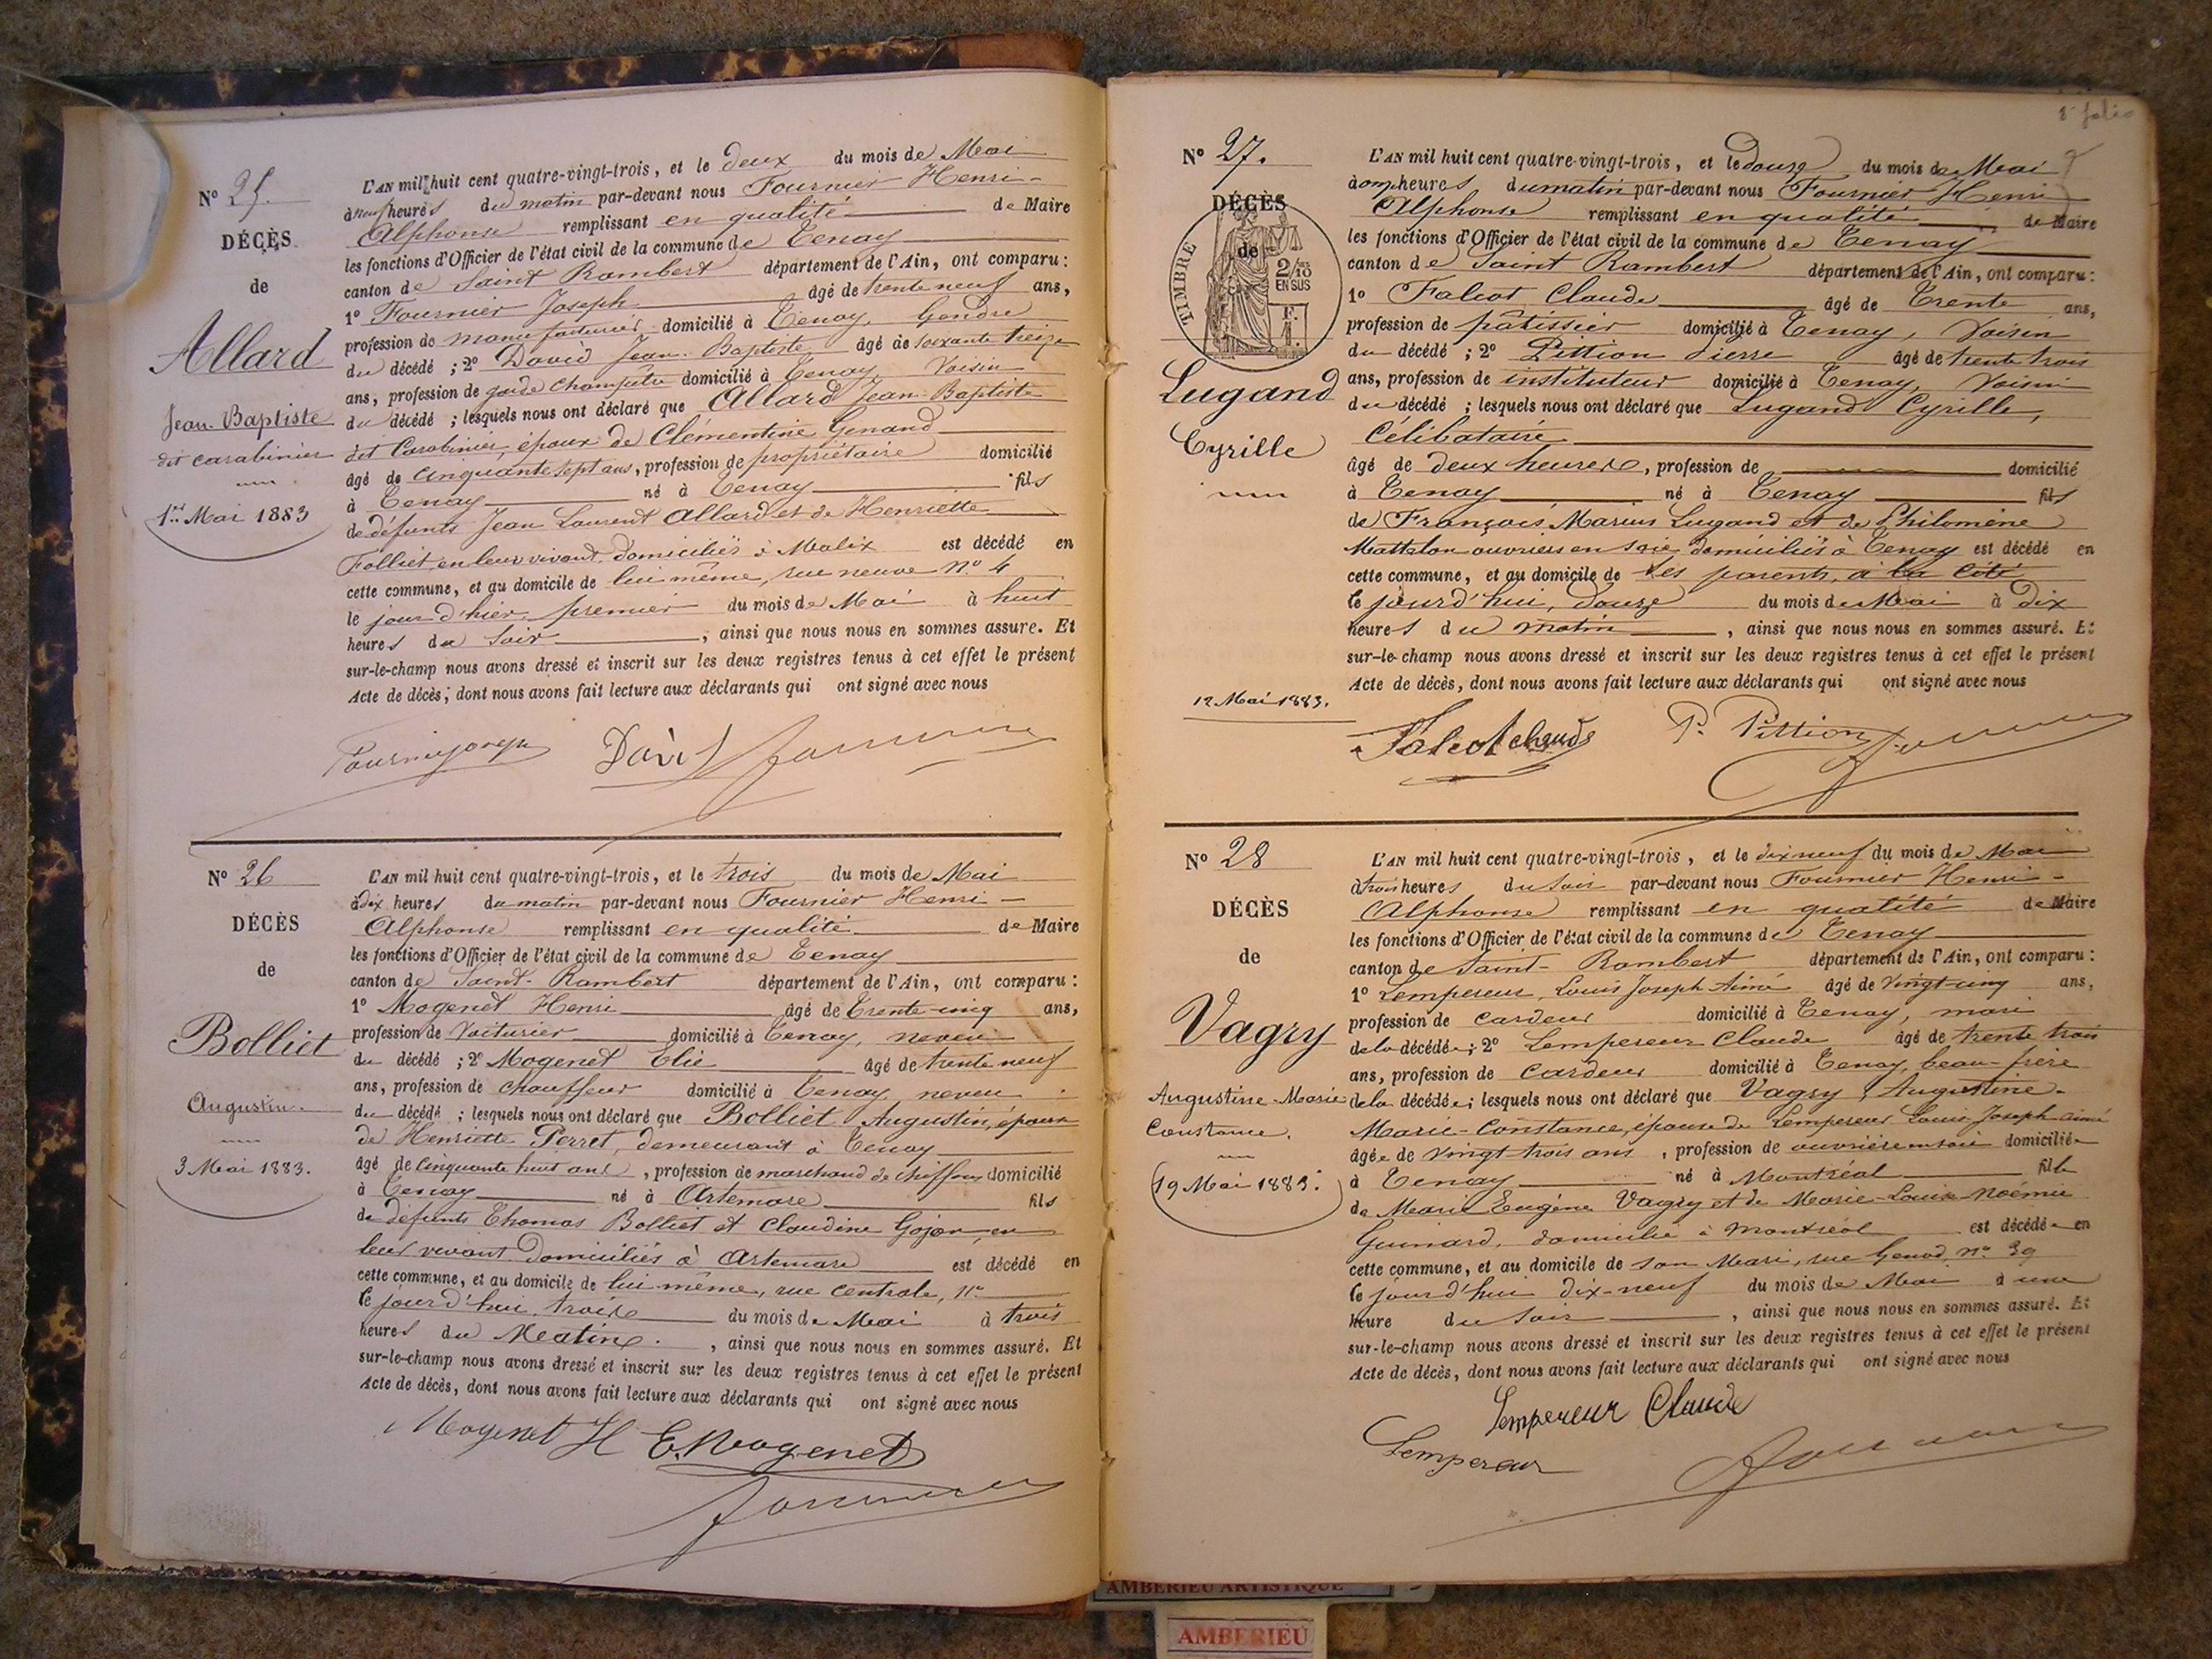 N° 25.
DÉCÈS
de
Allard
Jean-Baptiste
dit carabinier
1er Mai 1883
L'AN mil huit cent quatre-vingt-trois, et le deux du mois de Mai
à neuf heures du matin par-devant nous Fournier Henri-
Alphonse remplissant en qualité de Maire
les fonctions d'Officier de l'état civil de la commune de Tenay
canton de Saint Rambert département de l'Ain, ont comparu :
1° Fournier Joseph âgé de trente neuf ans,
profession de manufacturier domicilié à Tenay, Gendre
du décédé ; 2° David Jean-Baptiste âgé de soixante treize
ans, profession de garde champêtre domicilié à Tenay Voisin
du décédé ; lesquels nous ont déclaré que Allard Jean-Baptiste
dit Carabinier, époux de Clémentine Genand
âgé de cinquante sept ans, profession de propriétaire domicilié
à Tenay né à Tenay fils
de défunts Jean Laurent Allard et de Henriette
Folliet, en leur vivant domiciliés à Malix est décédé en
cette commune, et au domicile de lui même, rue neuve N° 4
le jour d'hier, premier du mois de Mai à huit
heures du soir, ainsi que nous nous en sommes assuré. Et
sur-le-champ nous avons dressé et inscrit sur les deux registres tenus à cet effet le présent
Acte de décès, dont nous avons fait lecture aux déclarants qui ont signé avec nous
David
N° 26
DÉCÈS
de
Bolliet
Augustin.
3 Mai 1883.
L'AN mil huit cent quatre-vingt-trois, et le trois du mois de Mai
à dix heures du matin par-devant nous Fournier Henri-
Alphonse remplissant en qualité de Maire
les fonctions d'Officier de l'état civil de la commune de Tenay
canton de Saint-Rambert département de l'Ain, ont comparu :
1° Mogenet Henri âgé de Trente-cinq ans,
profession de Voiturier domicilié à Tenay, neveu
du décédé ; 2° Mogenet Elie âgé de trente neuf
ans, profession de chauffeur domicilié à Tenay neveu
du décédé ; lesquels nous ont déclaré que Bolliet Augustin, époux
de Henriette Perret, demeurant à Tenay
âgé de cinquante huit ans, profession de marchand de chiffons domicilié
à Tenay né à Artemare fils
de défunts Thomas Bolliet et Claudine Gojon, en
leur vivant domiciliés à Artemare est décédé en
cette commune, et au domicile de lui même, rue centrale, n°
le jourd'hui trois du mois de Mai à trois
heures du Matin, ainsi que nous nous en sommes assuré. Et
sur-le-champ nous avons dressé et inscrit sur les deux registres tenus à cet effet le présent
Acte de décès, dont nous avons fait lecture aux déclarants qui ont signé avec nous
Mogenet H E. Mogenet
N° 27.
DÉCÈS
de
TIMBRE
2/10 EN SUS
Lugand
Cyrille
12 Mai 1883.
L'AN mil huit cent quatre-vingt-trois, et le douze du mois de Mai
à onze heures du matin par-devant nous Fournier Henri
Alphonse remplissant en qualité de Maire
les fonctions d'Officier de l'état civil de la commune de Tenay
canton de Saint Rambert département de l'Ain, ont comparu :
1° Falcot Claude âgé de Trente ans,
profession de pâtissier domicilié à Tenay, Voisin
du décédé ; 2° Pittion Pierre âgé de trente trois
ans, profession de instituteur domicilié à Tenay, Voisin
du décédé ; lesquels nous ont déclaré que Lugand Cyrille,
Célibataire
âgé de deux heures, profession de domicilié
à Tenay né à Tenay fils
de François Marius Lugand et de Philomène
Mattelon ouvriers en soie domiciliés à Tenay est décédé en
cette commune, et au domicile de ses parents, à la Cité
le jourd'hui, douze du mois de Mai à dix
heures du matin, ainsi que nous nous en sommes assuré. Et
sur-le-champ nous avons dressé et inscrit sur les deux registres tenus à cet effet le présent
Acte de décès, dont nous avons fait lecture aux déclarants qui ont signé avec nous
Falcot claude P. Pittion
N° 28
DÉCÈS
de
Vagry
Augustine-Marie
Constance.
19 Mai 1883.
L'AN mil huit cent quatre-vingt-trois, et le dix neuf du mois de Mai
à trois heures du soir par-devant nous Fournier Henri-
Alphonse remplissant en qualité de Maire
les fonctions d'Officier de l'état civil de la commune de Tenay
canton de Saint-Rambert département de l'Ain, ont comparu :
1° Lempereur, Louis Joseph Aimé âgé de vingt-cinq ans,
profession de cardeur domicilié à Tenay, mari
de la décédée ; 2° Lempereur Claude âgé de trente trois
ans, profession de cardeur domicilié à Tenay, beau-frère
de la décédée ; lesquels nous ont déclaré que Vagry Augustine-
Marie-Constance, épouse de Lempereur Louis Joseph aimé
âgée de vingt trois ans, profession de ouvrière en soie domiciliée
à Tenay né à Montréal fille
de Marie Eugène Vagry et de Marie-Louise Noémie
Guinard, domicilié à Montréal est décédée en
cette commune, et au domicile de son Mari, rue Genod, n° 39
le jourd'hui dix-neuf du mois de Mai à une
heure du soir, ainsi que nous nous en sommes assuré. Et
sur-le-champ nous avons dressé et inscrit sur les deux registres tenus à cet effet le présent
Acte de décès, dont nous avons fait lecture aux déclarants qui ont signé avec nous
Lempereur Claude
Lempereur
AMBERIEU ARTISTIQUE
AMBERIEU